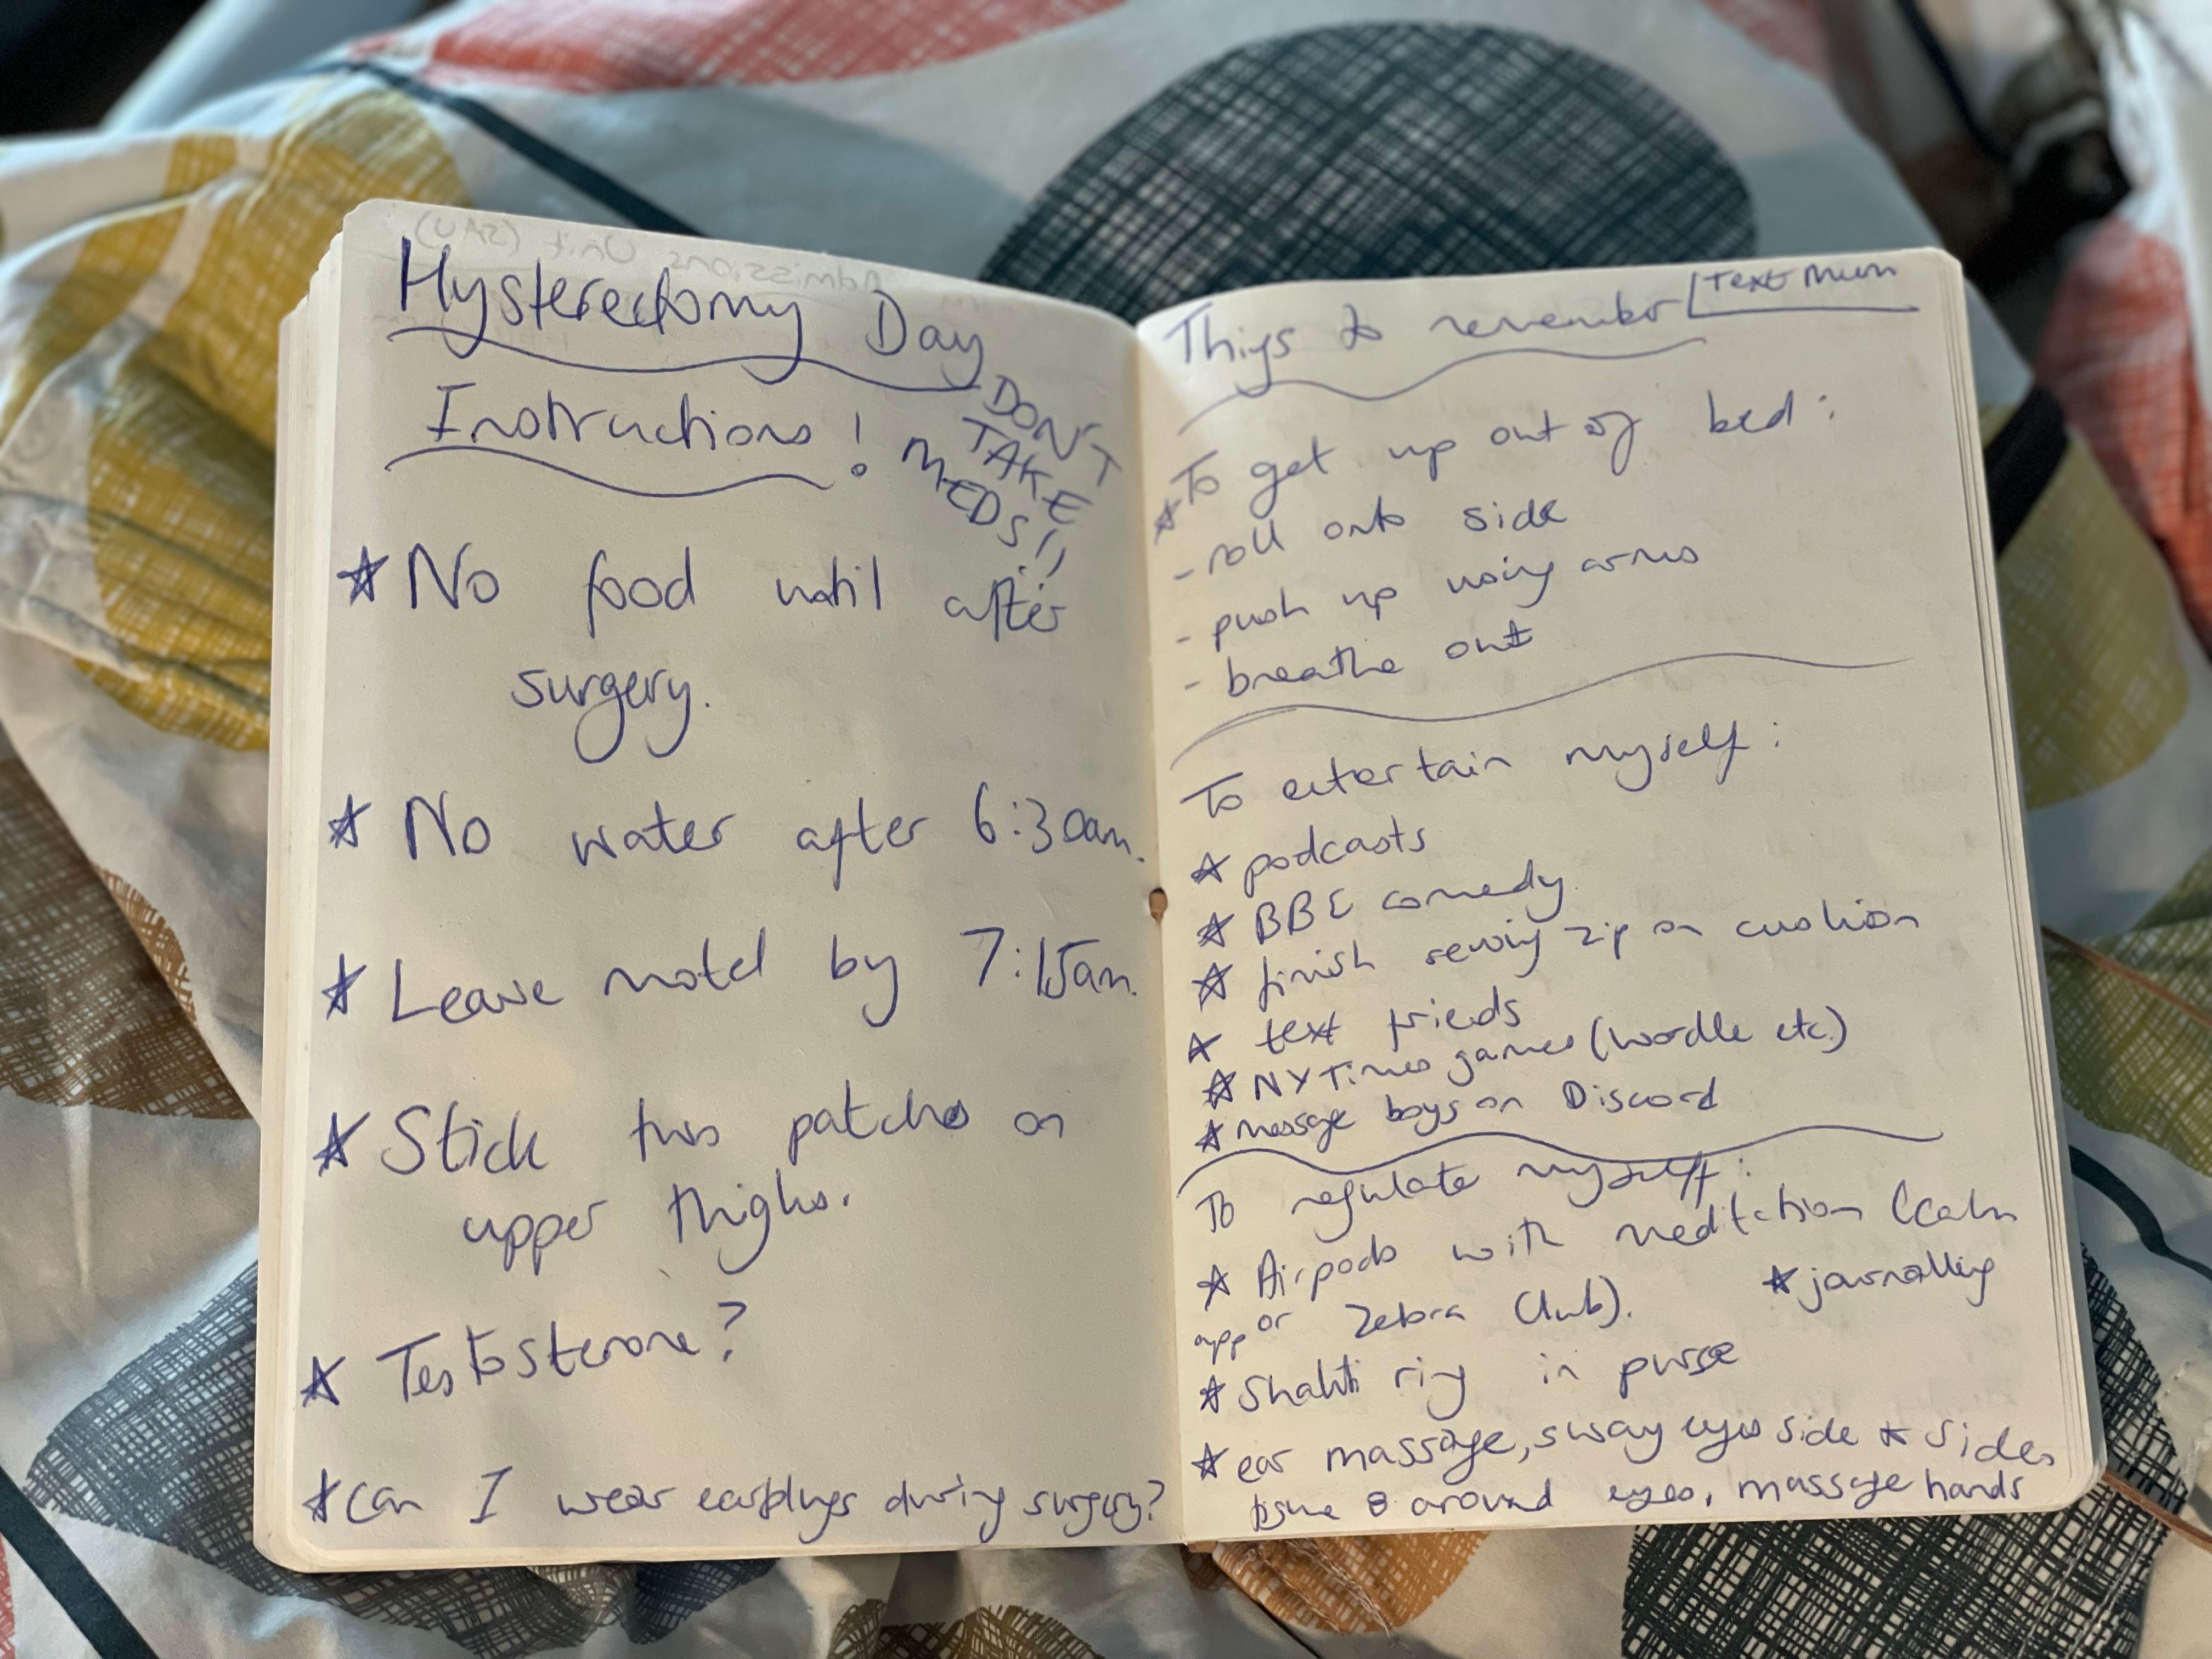 Hysterectomy Day
Instructions!
DON'T
TAKE
MEDS!!
* No food until after
surgery.
* No water after 6:30am.
* Leave motel by 7:15am.
* Stick two patches on
upper thighs.
* Testosterone?
* Can I wear earplugs during surgery?
Things to remember
Text Mum
* To get up out of bed:
- roll onto side
- push up using arms
- breathe out
To entertain myself:
* podcasts
* BBC comedy
* finish sewing zip on cushion
* text friends
* NY Times games (wordle etc)
* message boys on Discord
To regulate myself:
* Airpods with meditation (calm
app or Zebra Club).
* journalling
* Shakti ring in purse
* ear massage, sway eyes side to side,
8 around eyes, massage hands
Admissions Unit (SAU)